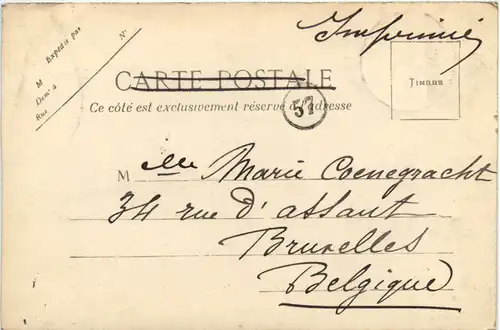 Imprimé
Expédié par
N°
M
Dem^t à
Rue
CARTE POSTALE
TIMBRE
Ce côté est exclusivement réservé à l'adresse
57
Melle Marie Coenegracht
34 rue d'assaut
Bruxelles
Belgique